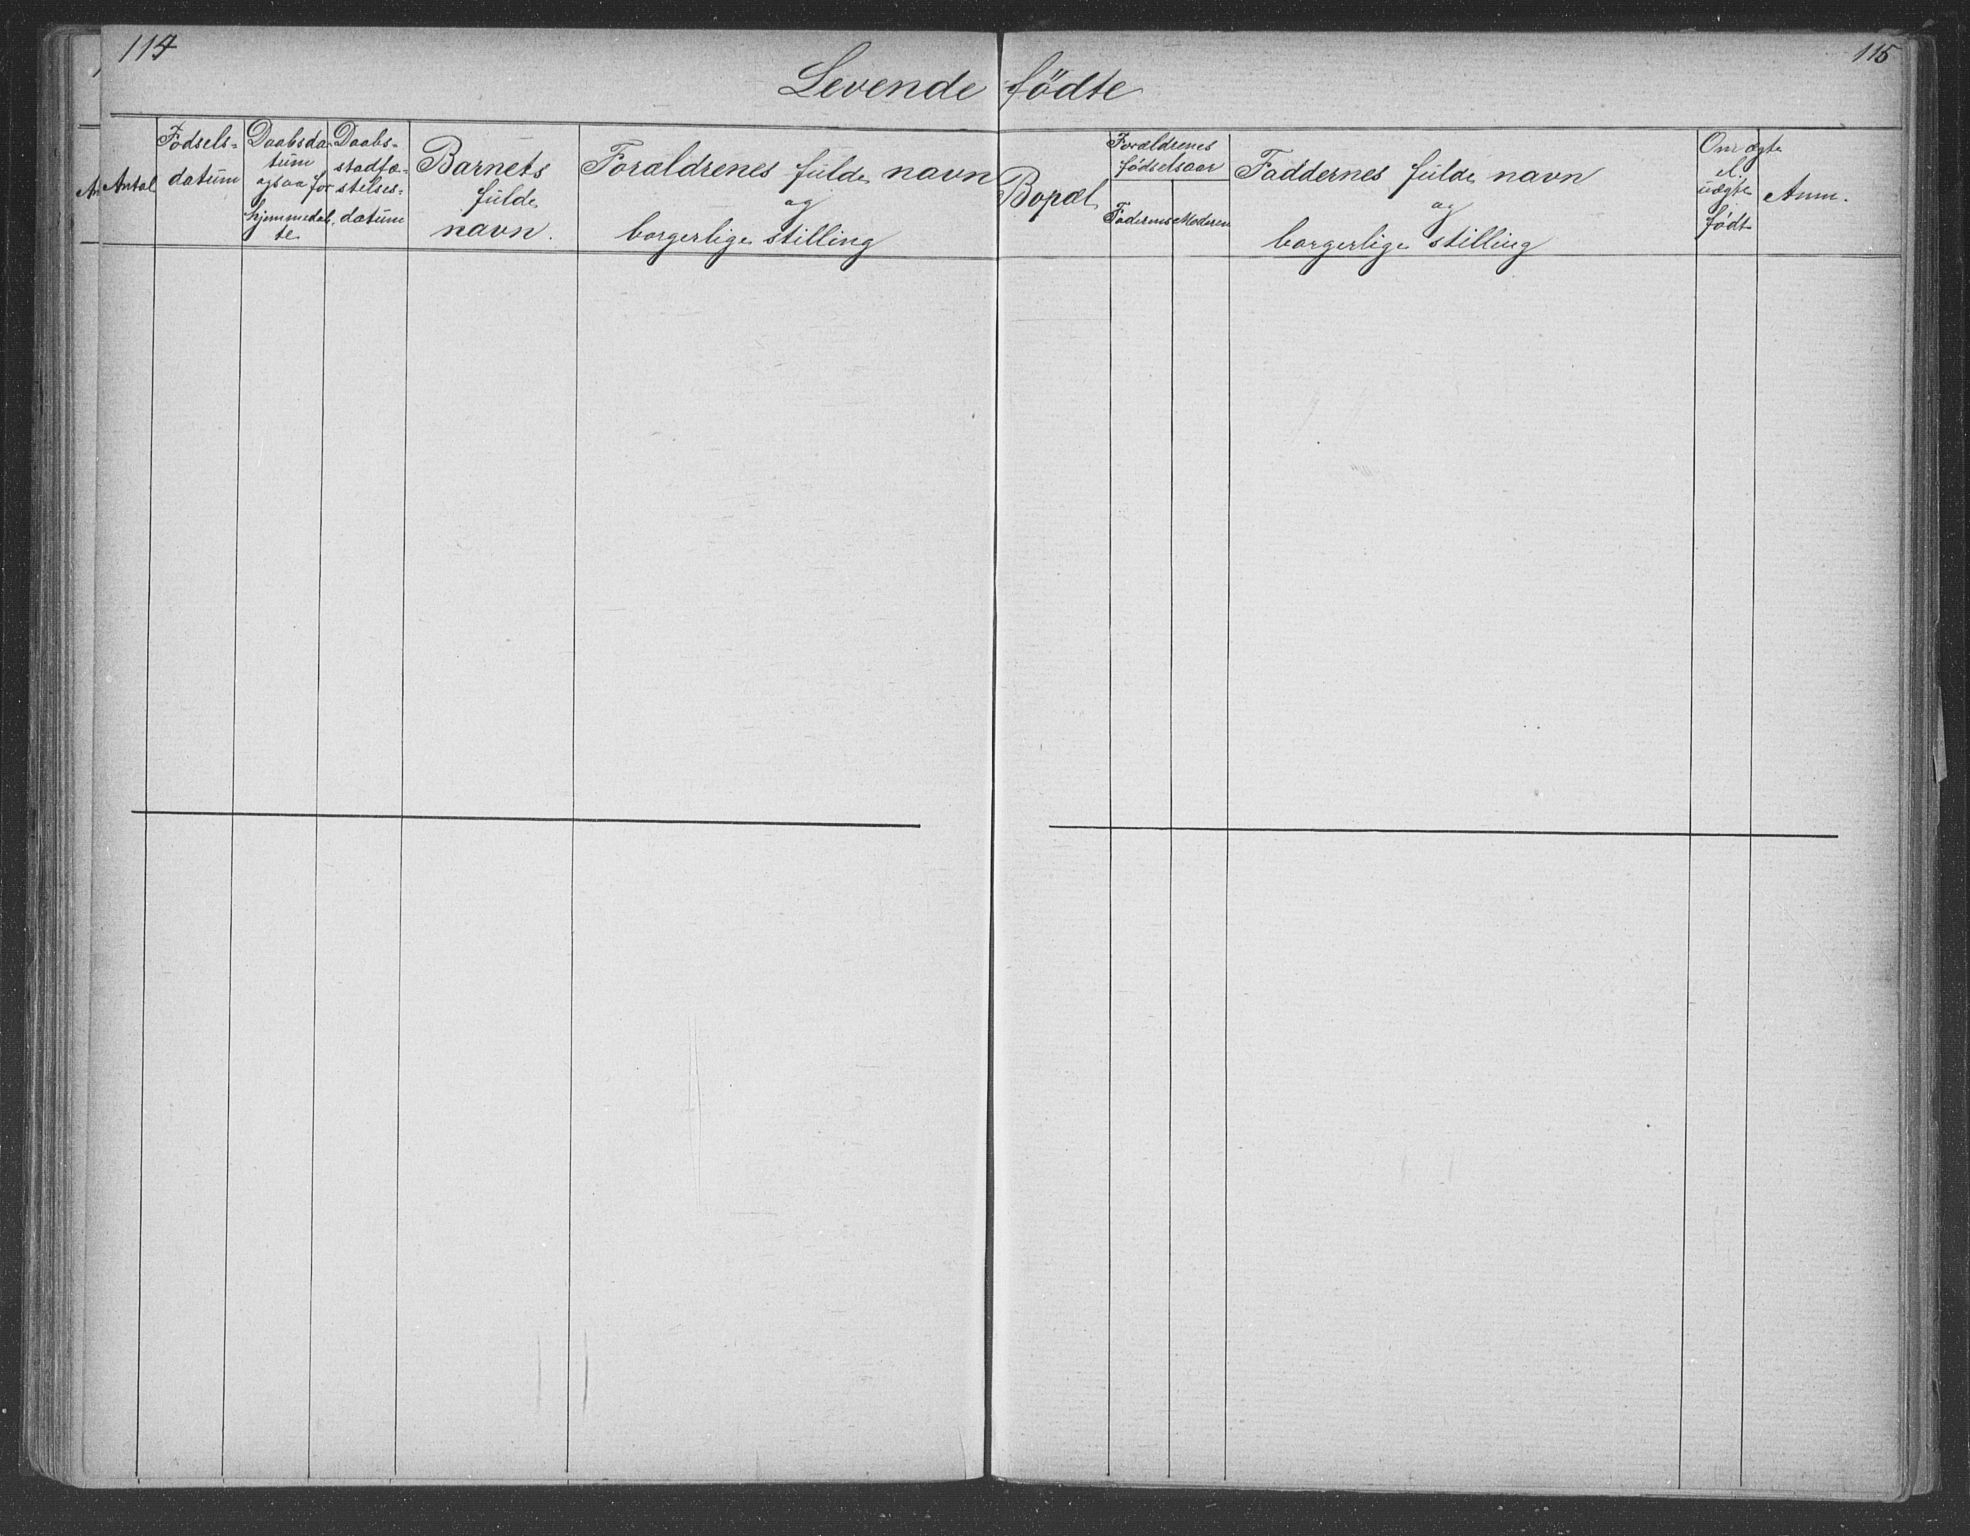 114
115
Levende fødte
Antal
Fødsels-
datum
Daabsda-
tum
ogsaa for
hjemmedøb
te
Daabs-
stadfæ-
stelses-
datum
Barnets
fulde
navn.
Forældrenes fulde navn
og
borgerlige stilling
Bopæl
Forældrenes
fødselsaar
Faderens
Moderen
Faddernes fulde navn
og
borgerlige stilling
Om ægte
el.
uægte
født
Anm.